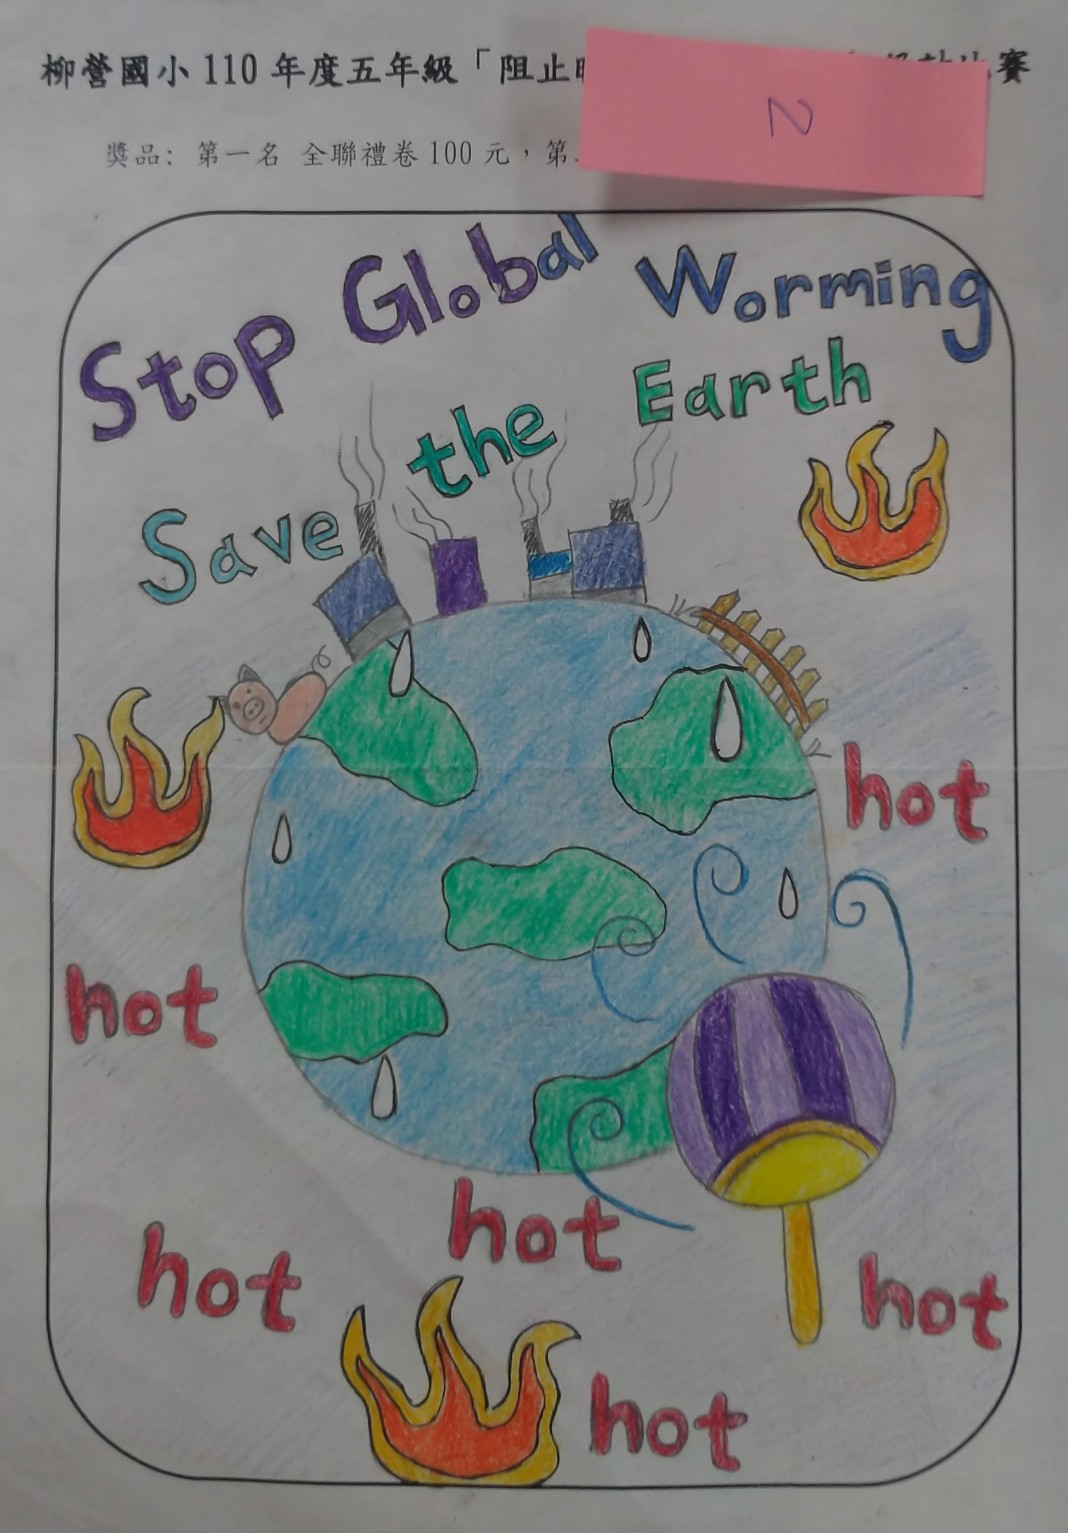 柳營國小 110 年度五年級「阻止
賽
獎品: 第一名 全聯禮卷 100 元，第
N
Stop Global Worming
Save the Earth
hot
hot
hot
hot
hot
hot